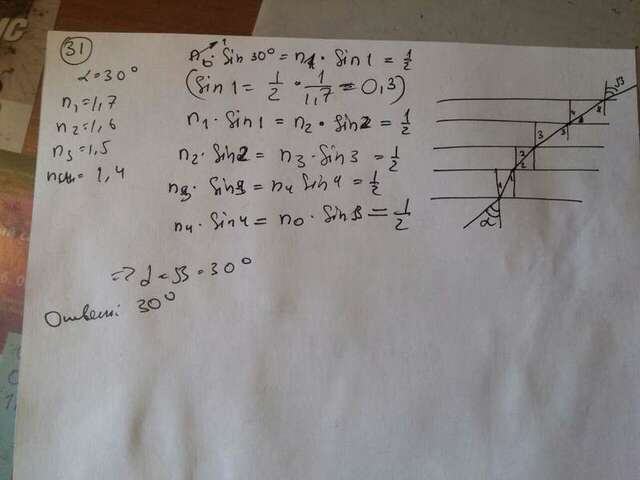 31
α = 30°
n₁ = 1,7
n₂ = 1,6
n₃ = 1,5
= 1,4
Sin 30° = n₁ · Sin 1 = 1/2
(Sin 1 = 1/2 · 1/1,7 = 0,3)
n₁ · Sin 1 = n₂ · Sin 2 = 1/2
n₂ · Sin 2 = n₃ · Sin 3 = 1/2
n₃ · Sin 3 = n₄ Sin 4 = 1/2
n₄ · Sin 4 = n₀ · Sin β = 1/2
=> α = β = 30°
Ответ: 30°
β
4
3
2
1
α